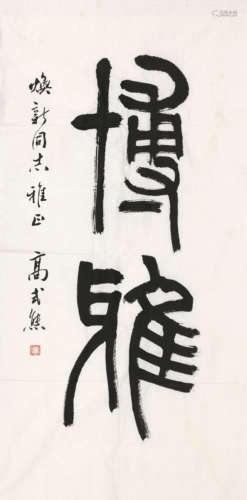 博雅
焕新同志雅正
高式熊